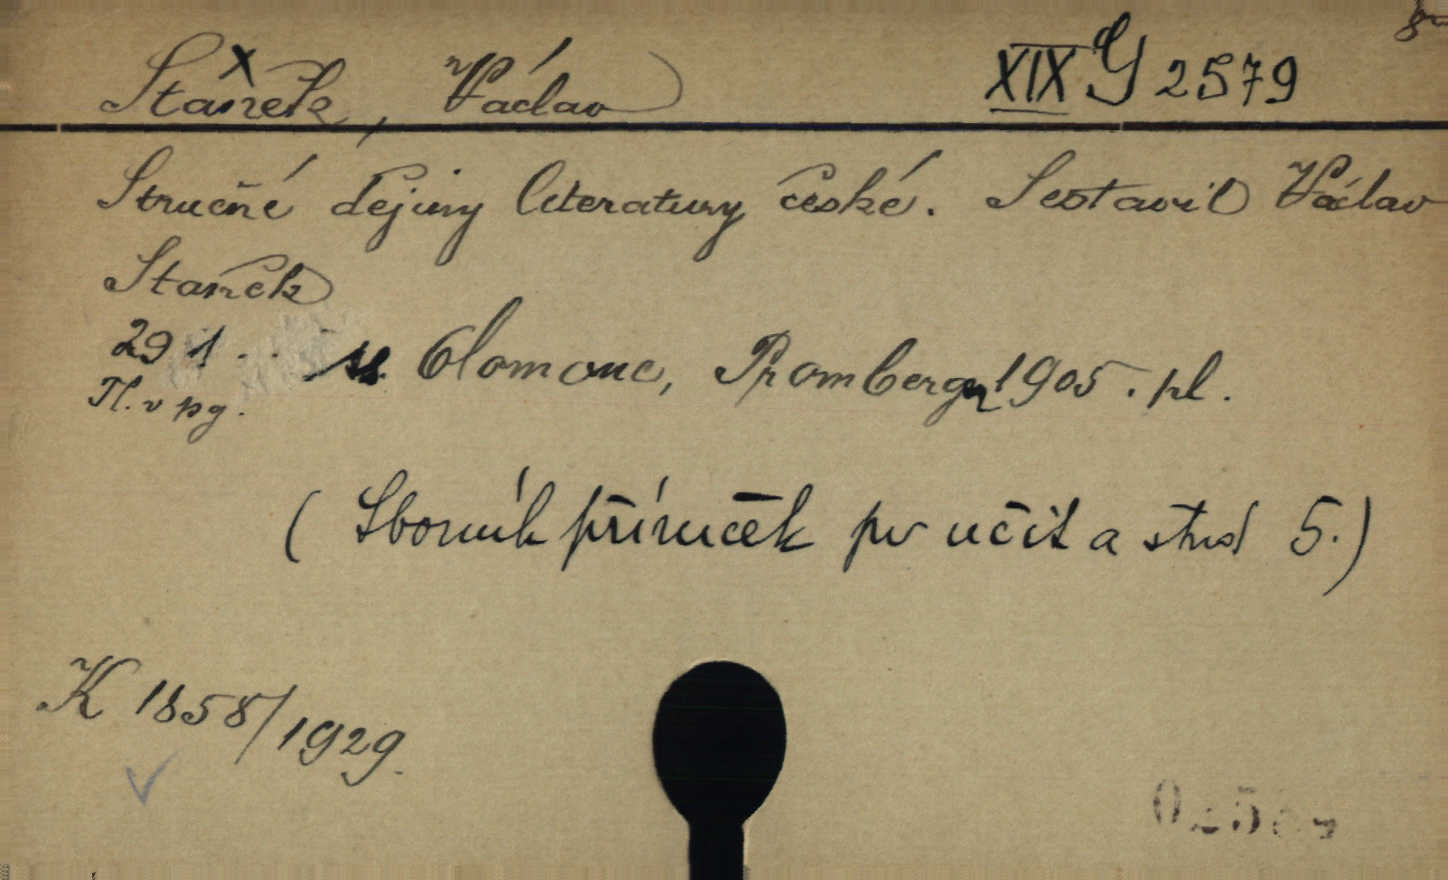 Staněk, Václav XIX G 2579
Stručné dějiny literatury české. Sestavil Václav
Staněk
291 s. Olomouc, Promberger 1905. pl.
Tl. v pg.
(Sborník příruček pro učit a stud 5.)
K 1858/1929.